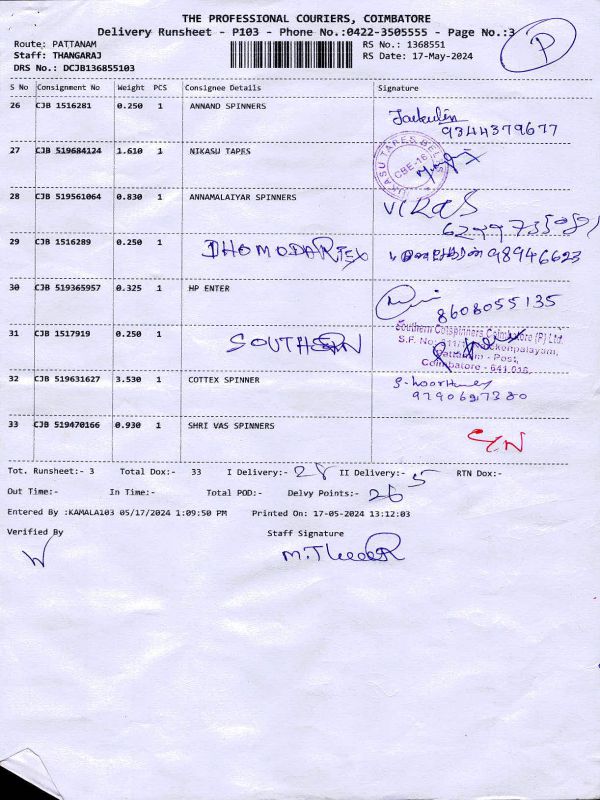 THE PROFESSIONAL COURIERS, COIMBATORE
Delivery Runsheet - P103 - Phone No.:0422-3505555 - Page No.:3
P
Route: PATTANAM
RS No.: 1368551
Staff: THANGARAJ
RS Date: 17-May-2024
DRS No.: DCJB136855103
S No Consignment No Weight PCS Consignee Details Signature
26 CJB 1516281 0.250 1 ANNAND SPINNERS
9344379677
27 CJB 519684124 1.610 1 NIKASU TAPES
NIKASU TAPES CBE-16
28 CJB 519561064 0.830 1 ANNAMALAIYAR SPINNERS
29 CJB 1516289 0.250 1 DHOMODARTEX 98946623
30 CJB 519365957 0.325 1 HP ENTER
8608055135
31 CJB 1517919 0.250 1 SOUTHERN
Southern Cotspinners Coimbatore (P) Ltd
S.F. No.
Pattanam - Post,
Coimbatore - 641 016.
32 CJB 519631627 3.530 1 COTTEX SPINNER
33 CJB 519470166 0.930 1 SHRI VAS SPINNERS
Tot. Runsheet:- 3 Total Dox:- 33 I Delivery:- 28 II Delivery:- 5 RTN Dox:-
Out Time:- In Time:- Total POD:- Delvy Points:- 26
Entered By :KAMALA103 05/17/2024 1:09:50 PM Printed On: 17-05-2024 13:12:03
Verified By Staff Signature